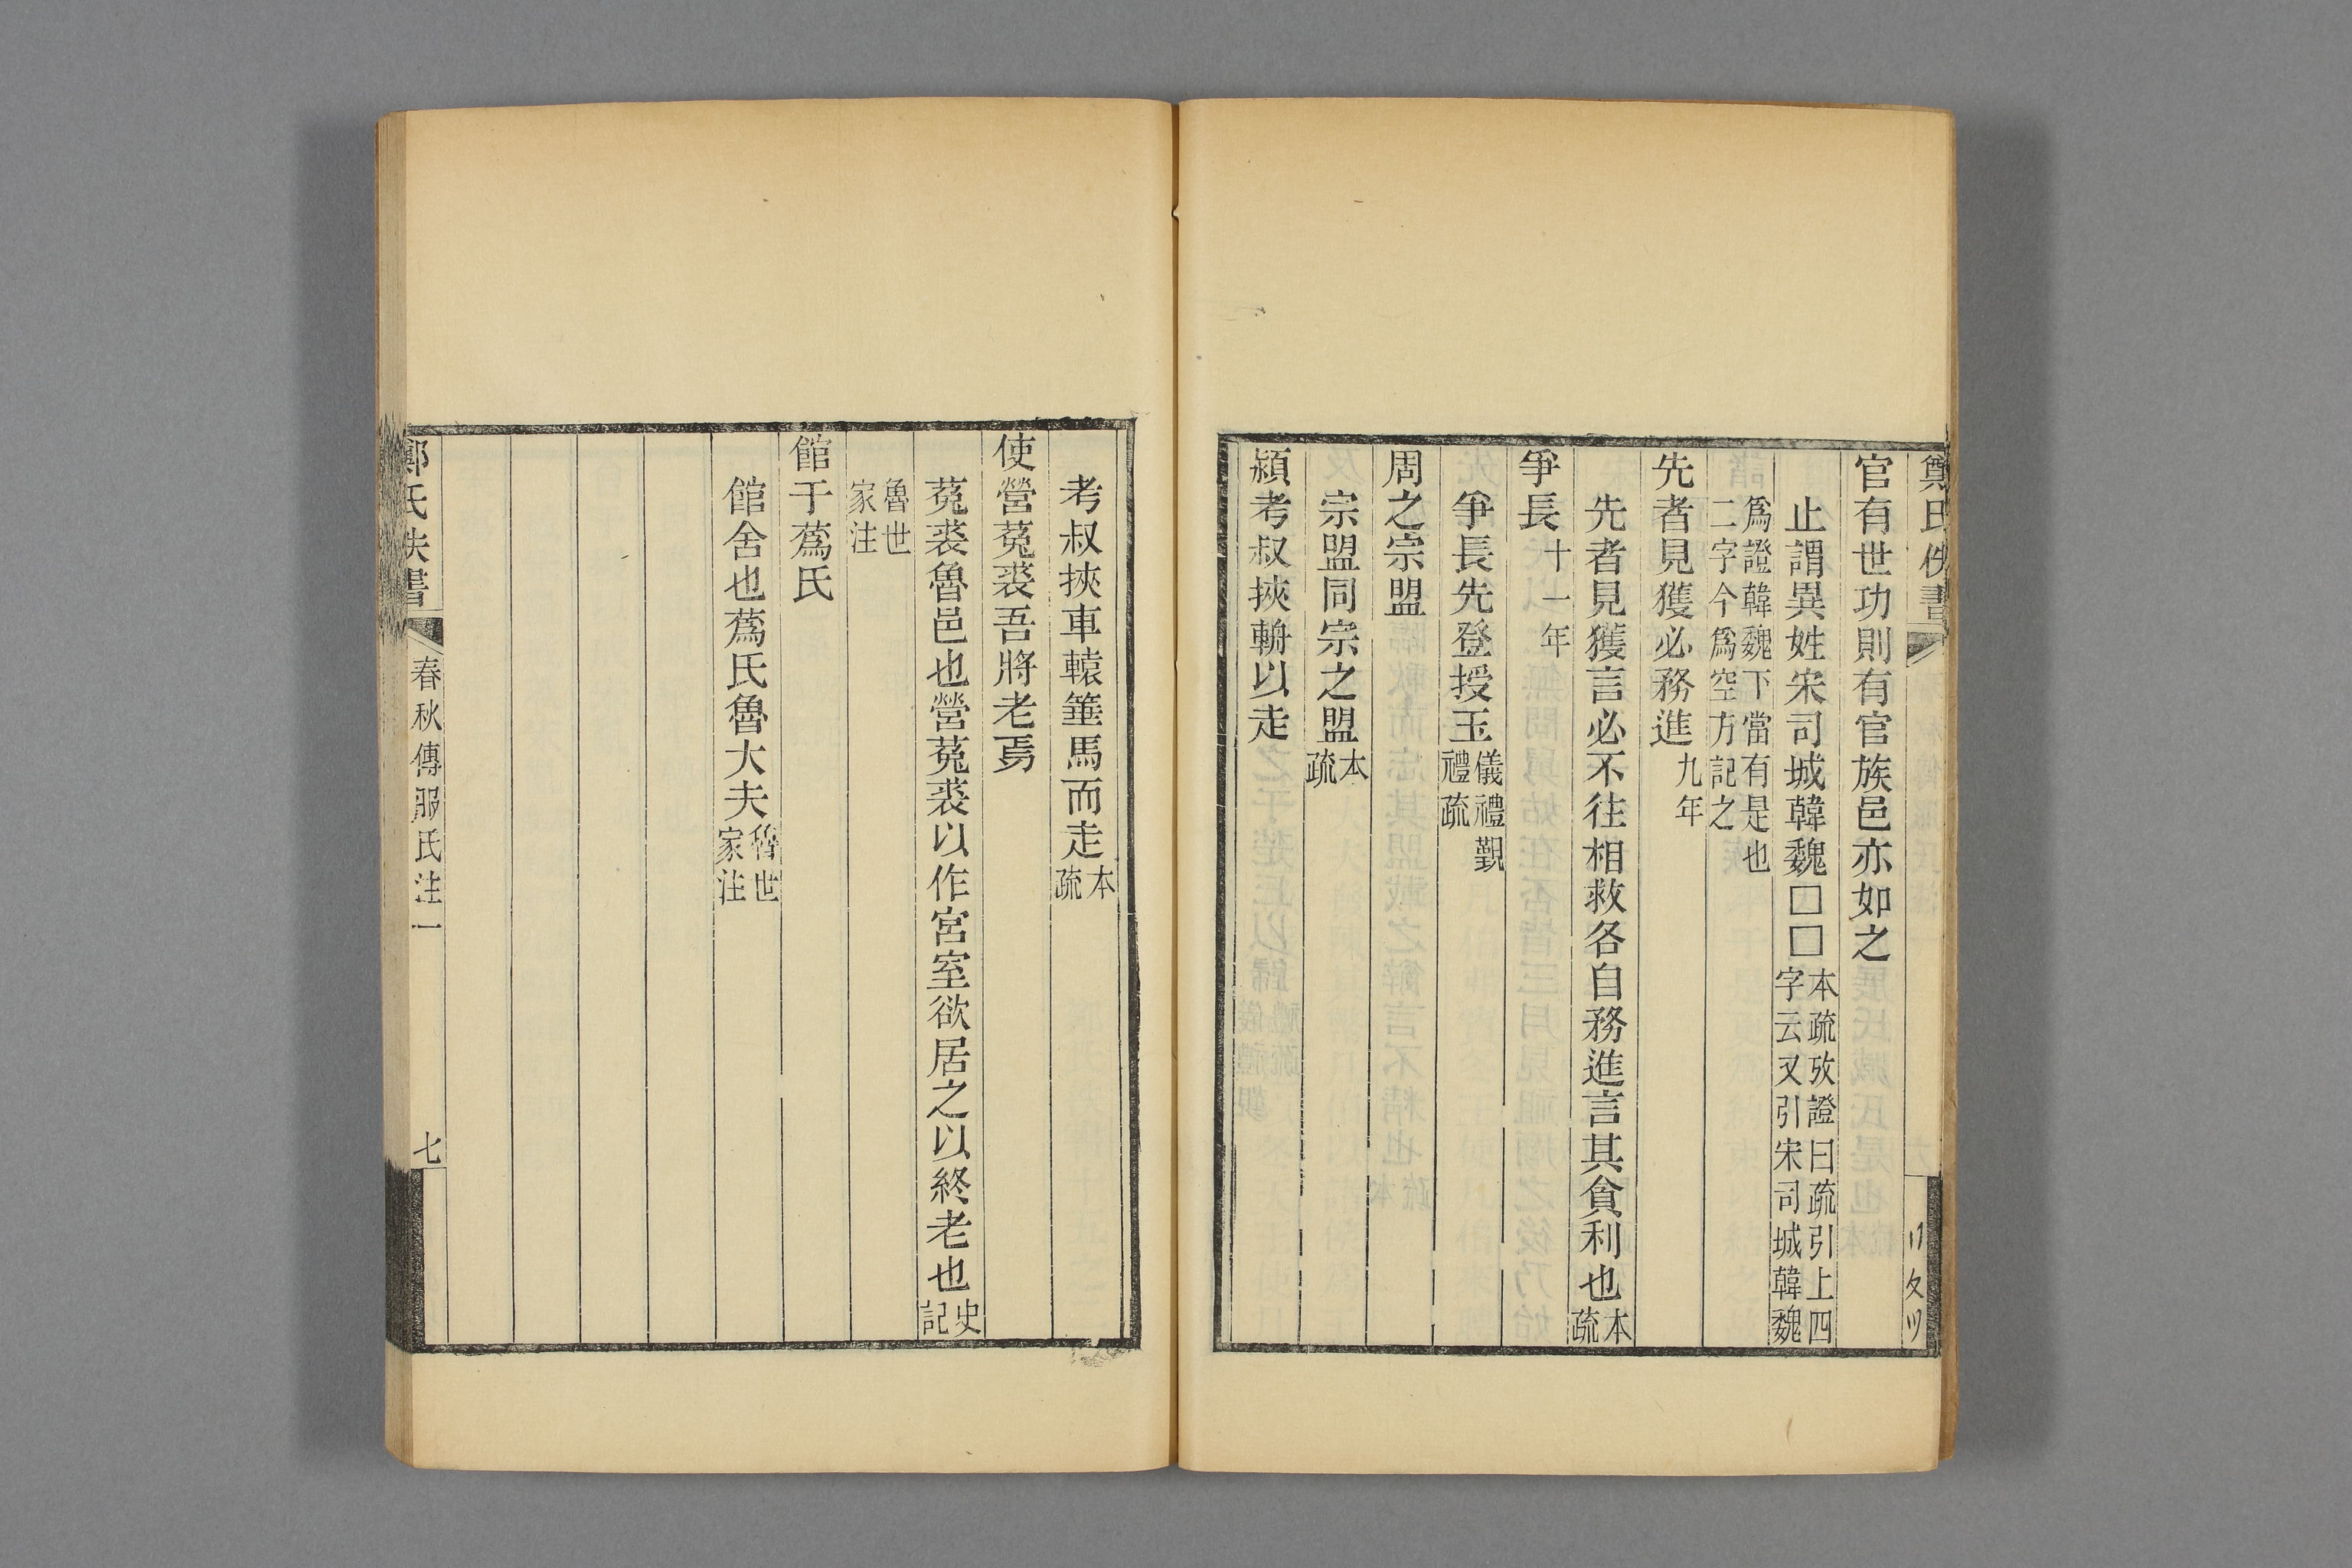 鄭氏佚書
官有世功則有官族邑亦如之
止謂異姓宋司城韓魏□□本疏攷證曰疏引上四
字云又引宋司城韓魏
爲證韓魏下當有是也
二字今爲空方記之
先者見獲必務進九年
先者見獲言必不往相救各自務進言其貪利也本疏
爭長十一年
爭長先登授玉儀禮覲
禮疏
周之宗盟
宗盟同宗之盟本疏
潁考叔挾輈以走
考叔挾車轅箠馬而走本疏
使營菟裘吾將老焉
菟裘魯邑也營菟裘以作宮室欲居之以終老也史記
魯世
家注
館于蔿氏
館舍也蔿氏魯大夫魯世
家注
鄭氏佚書 春秋傳服氏注一 七